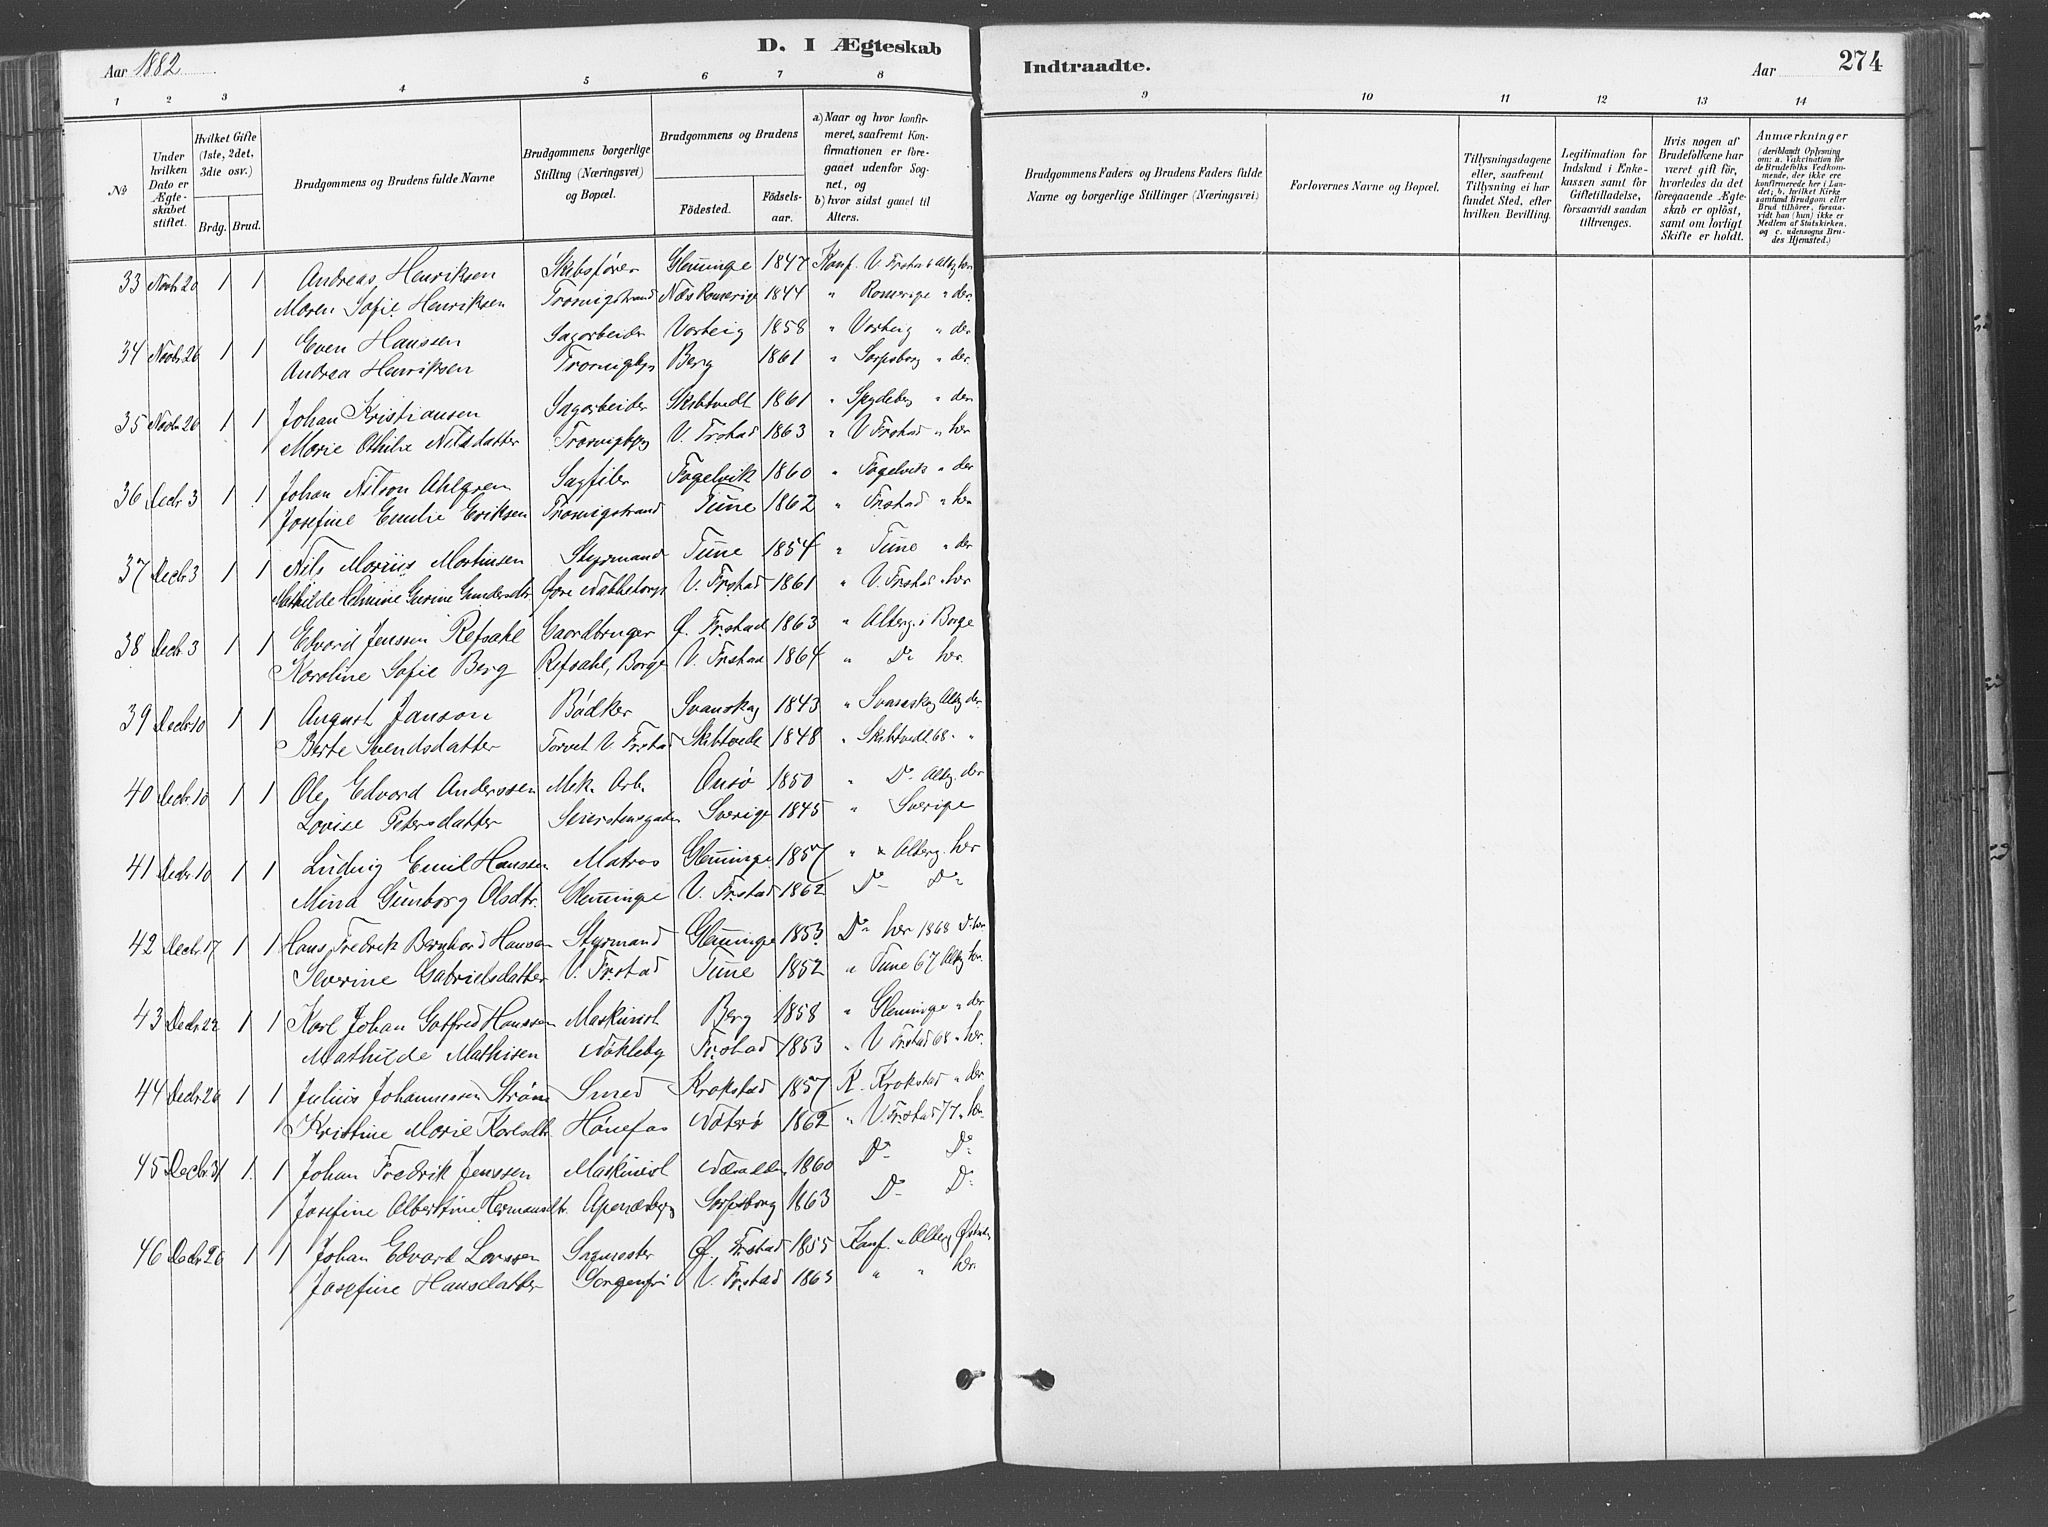 Aar 1882
D. I Ægteskab
1 2 3 4 5 6 7 8
No
Under hvilken Dato er Ægteskabet stiftet.
Hvilket Gifte (1ste, 2det, 3die osv.)
Brdg. Brud.
Brudgommens og Brudens fulde Navne
Brudgommens borgerlige Stilling (Næringsvei) og Bopæl.
Brudgommens og Brudens
Födested. Födselsaar.
a) Naar og hvor konfirmeret, saafremt Konfirmationen er foregaaet udenfor Sognet, og
b) hvor sidst gaaet til Alters.
33 Novbr 20 1 1 Andreas Henriksen Skibsfører Glemminge 1847 Konf. V. Frstad & Altg her
Maren Sofie Henriksen Trosvigstrand Næs Romerige 1844 " Romerige " der.
34 Novbr 26 1 1 Even Hanssen Sagarbeider Varteig 1858 " Varteig " der
Andrea Henriksen Berg 1861 " Sarpsborg " der.
35 Novbr 26 1 1 Johan Kristiansen Sagarbeider Skibtvedt 1861 " Spydeberg " der
Marie Othilie Nilsdatter V. Frstad 1863 " V Frstad " her
36 Decbr 3 1 1 Johan Nilson Ahlgren Sagfiler Fogelvik 1860 " Fogelvik " der
Josefine Emilie Eriksen Trosvigstrand Tune 1862 " Frstad " her
37 Decbr 3 1 1 Nils Marius Martinsen Styrmand Tune 1854 " Tune " der
Mathilde Gurine Gundersdtr. V. Frstad 1861 " V. Frstad " her
38 Decbr 3 1 1 Edvard Jenssen Refsahl Gaardbruger Ø. Frstad 1863 " Alterg. i Borge
Karoline Sofie Berg Refsahl, Borge V. Frstad 1864 " Do her.
39 Decbr 10 1 1 August Janson Bødker Svanskog 1843 " Svanskog Altg der.
Berte Svendsdatter Torvet V. Frstad Skibtvedt 1848 " Skibtvedt 68 - "
40 Decbr 10 1 1 Ole Edvard Anderssen Mek. Arb. Onsø 1850 " Do Altg. der
Lovise Petersdatter Seierstensgaden Sverige 1845 " Sverige
41 Decbr 10 1 1 Ludvig Emil Hanssen Matros Glemminge 1857 " Alterg. her
Mina Gunborg Olsdtr. Glemminge V. Frstad 1862 Do Do
42 Decbr 17 1 1 Hans Fredrik Bernhard Hansen Styrmand Glemminge 1853 Do her 1868 Do her
Severine Gabrielsdatter V. Frstad Tune 1852 " Tune 67 Altg her.
43 Decbr 22 1 1 Karl Johan Gotfred Hanssen Maskinist Berg 1858 " Glemminge " der
Mathilde Mathisen Nøkleby Frstad 1853 " V Frstad 68 " her.
44 Decbr 26 1 1 Julius Johannessen Strøm Smed Krokstad 1857 K. Krokstad " der
Kristine Marie Karlsdtr. Hønefos Nøterø 1862 " V. Frstad 77 " her
45 Decbr 31 1 1 Johan Fredrik Jenssen Maskinist 1860 Do Do
Josefine Albertine Hermansdtr. Apenæsberg Sarpsborg 1863 Do Do
46 Decbr 26 1 1 Johan Edvard Larssen Sagmester Ø. Frstad 1855 Konf. " Alterg
Josefine Hansdatter Sorgenfri V. Frstad 1863 " " her
Indtraadte.
Aar 274
9 10 11 12 13 14
Brudgommens Faders og Brudens Faders fulde Navne og borgerlige Stillinger (Næringsvei)
Forlovernes Navne og Bopæl.
Tillysningsdagene eller, saafremt Tillysning ei har fundet Sted, efter hvilken Bevilling.
Legitimation for Indskud i Enkekassen samt for Giftetilladelse, forsaavidt saadan tiltrænges.
Hvis nogen af Brudefolkene har været gift før, hvorledes da det foregaaende Ægteskab er opløst, samt om lovligt Skifte er holdt.
Anmærkninger (deriblandt Oplysning om: a. Vakcination for de Brudefolks Vedkommende, der ikke ere konfirmerede her i Landet; b. hvilket Kirkesamfund Brudgom eller Brud tilhører, forsaavidt han (hun) ikke er Medlem af Statskirken. og c. udensogns Brudes Hjemsted.)